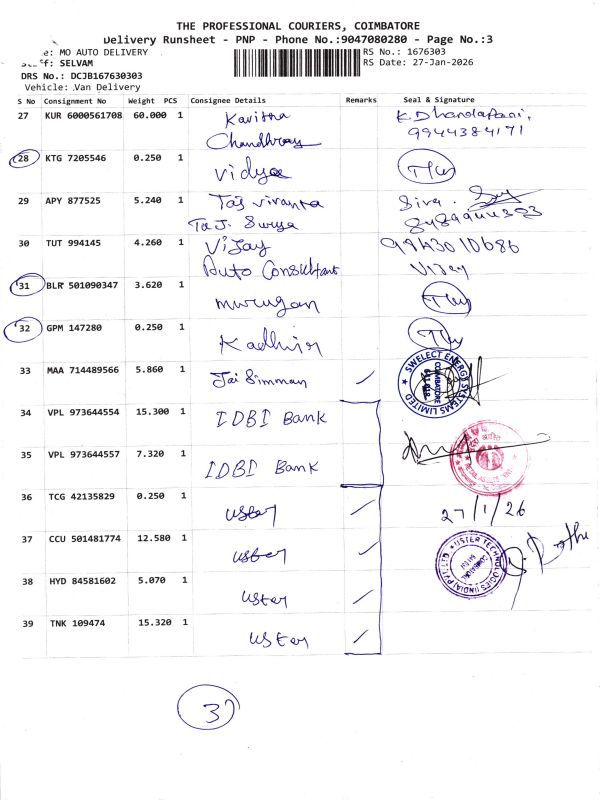 THE PROFESSIONAL COURIERS, COIMBATORE
Delivery Runsheet - PNP - Phone No.:9047080280 - Page No.:3
e: MO AUTO DELIVERY
RS No.: 1676303
ff: SELVAM
RS Date: 27-Jan-2026
DRS No.: DCJB167630303
Vehicle: Van Delivery
S No Consignment No Weight PCS Consignee Details Remarks Seal & Signature
27 KUR 6000561708 60.000 1 Kavitha K. Dhandapani,
Chandhray 9944384171
28 KTG 7205546 0.250 1 Vidya
29 APY 877525 5.240 1 Taj Vivanta Siva.
Taj. Surya
30 TUT 994145 4.260 1 Vijay 9943010686
Auto Consultant Vijay
31 BLR 501090347 3.620 1 murugan
32 GPM 147280 0.250 1 Kadhir
33 MAA 714489566 5.860 1 Jai Simman
SWELECT ENERGY SYSTEMS LIMITED COIMBATORE 641 018
34 VPL 973644554 15.300 1 IDBI Bank
35 VPL 973644557 7.320 1 IDBI Bank
36 TCG 42135829 0.250 1 Uster 27/1/26
37 CCU 501481774 12.580 1 Uster
USTER TECHNOLOGIES (INDIA) PVT LTD
38 HYD 84581602 5.070 1 Uster
39 TNK 109474 15.320 1 Uster
3